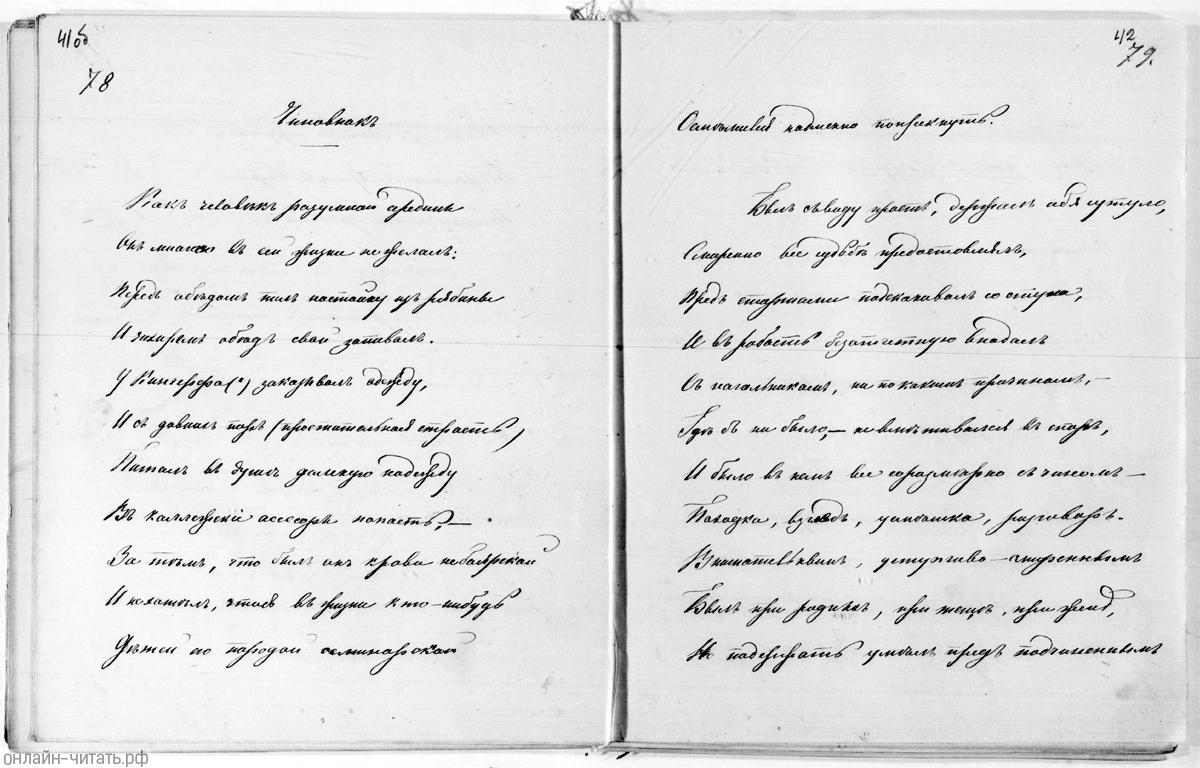 41об
78
Чиновникъ
Какъ человѣкъ разумной средины
Онъ многаго въ сей жизни не желалъ:
Передъ обѣдомъ пилъ настойку изъ рябины
И чихиремъ обѣдъ свой запивалъ.
У Кинчерфа (*) заказывалъ одежду,
И съ давнихъ поръ (простительная страсть)
Питалъ въ душѣ далекую надежду
Въ коллежскіе ассесоры попасть, —
За тѣмъ, что былъ онъ крови не боярской
И не хотѣлъ, чтобъ въ жизни кто-нибудь
Дѣтей его породой семинарской
42
79.
Осмѣлился надменно попрекнуть.
Былъ съ виду простъ, держалъ себя сутуло,
Смиренно все судьбѣ предоставлялъ,
Предъ старшими подскакивалъ со стула,
И въ робость безотчетную впадалъ
Съ начальникомъ, ни по какимъ причинамъ, —
Гдѣ бъ ни было, — не вмѣшивался въ споръ,
И было въ немъ все соразмѣрно съ чиномъ —
Походка, взглядъ, усмѣшка, разговоръ.
Внимательнымъ, уступчиво-смиреннымъ
Былъ при роднѣ, при тещѣ, при женѣ,
Но поддержать умѣлъ предъ подчиненнымъ
онлайн-читать.рф